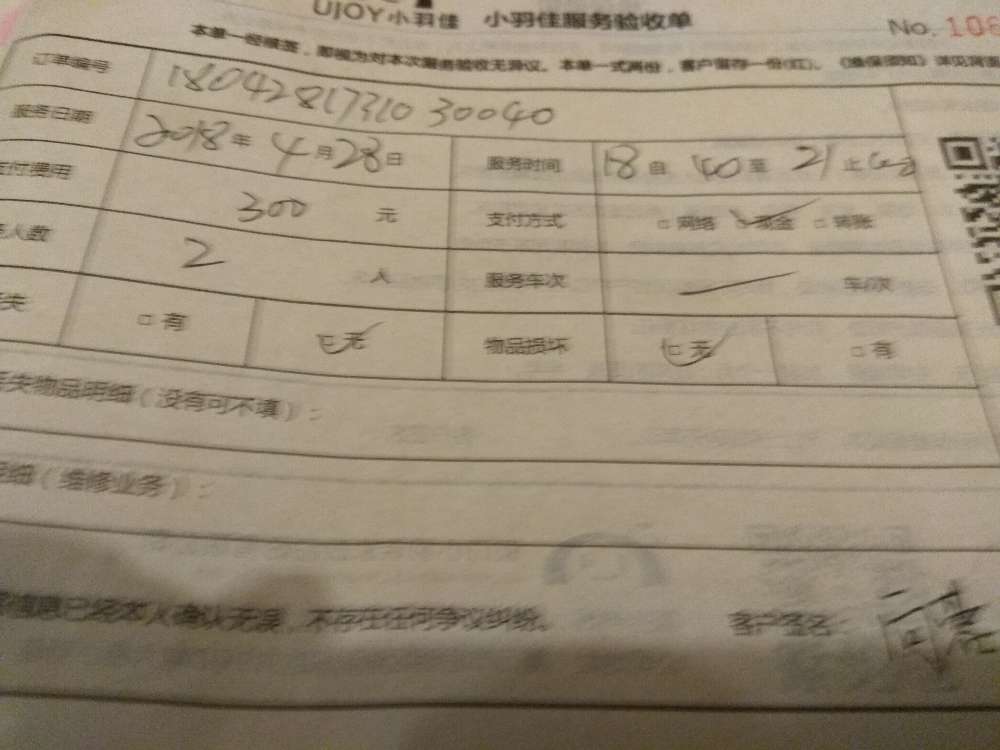 UJOY小羽佳 小羽佳服务验收单
No. 108
本单一经签，即视为对本次服务验收无异议。本单一式两份，客户留存一份(红)。《维保须知》详见背面
订单编号 1804281731030040
服务日期 2018年4月28日 服务时间 18自40至21止
支付费用 300元 支付方式 □网络 □现金 □转账
人数 2人 服务车次 车/次
失 □有 □无 物品损坏 □无 □有
失物品明细（没有可不填）：
细（维修业务）：
信息已经本人确认无误，不存在任何争议纠纷。 客户签名：